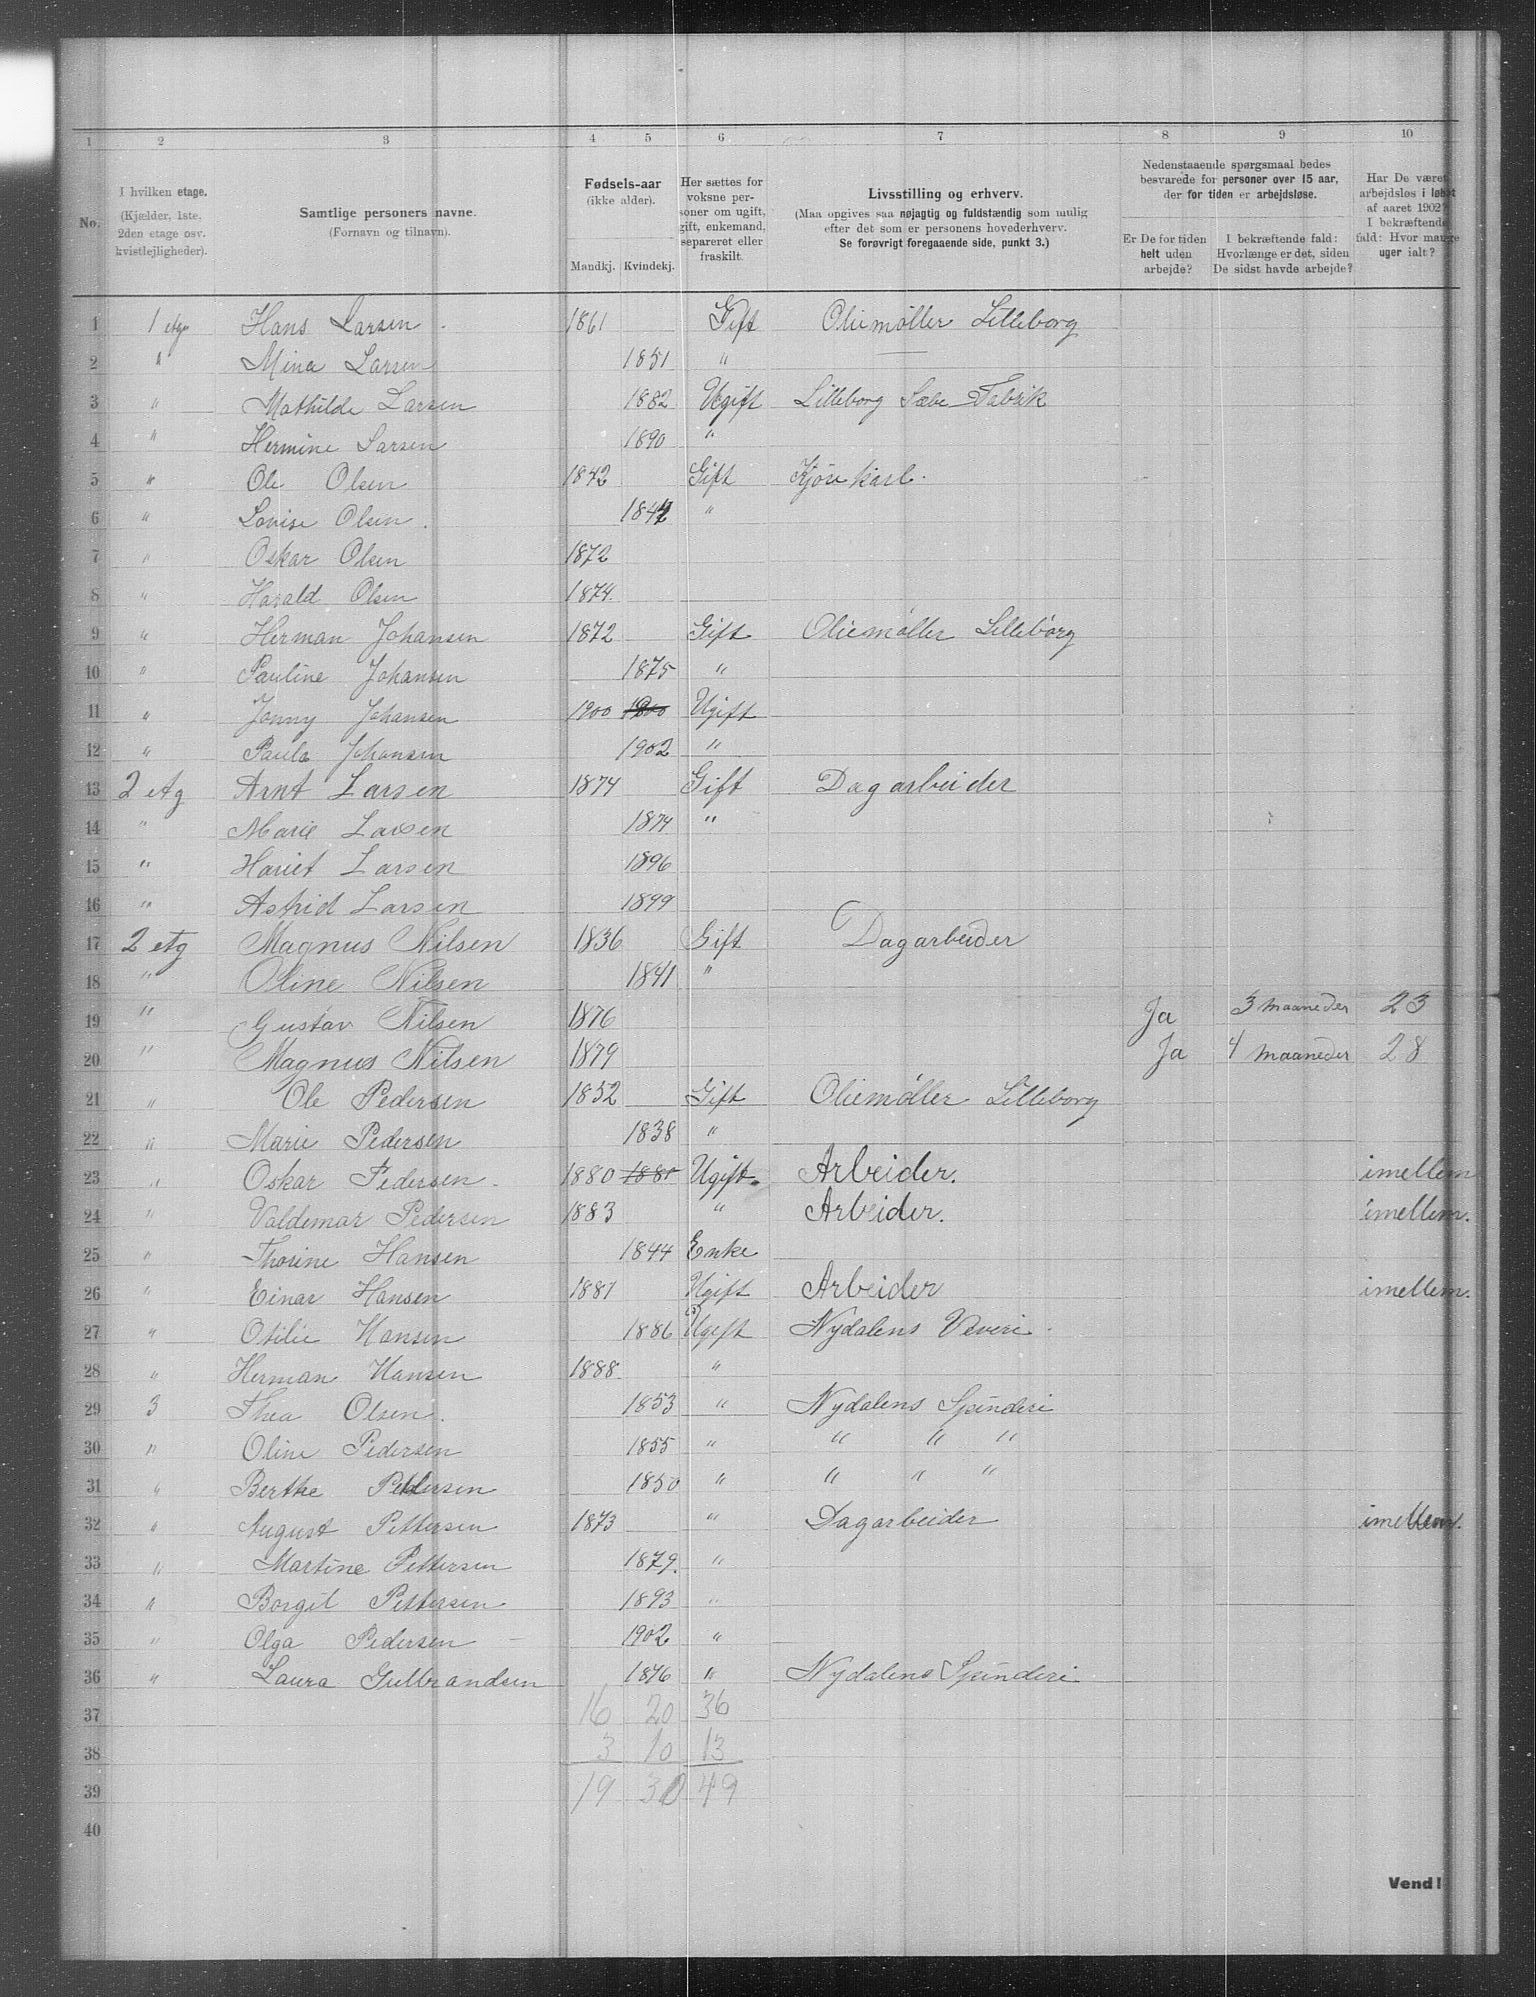 1 2 3 4 5 6 7 8 9 10
No.
I hvilken etage. (Kjælder, 1ste. 2den etage osv. kvistlejligheder).
Samtlige personers navne. (Fornavn og tilnavn).
Fødsels-aar (ikke alder).
Mandkj. Kvindekj.
Her sættes for voksne personer om ugift, gift, enkemand, separeret eller fraskilt.
Livsstilling og erhverv.
(Maa opgives saa nøjagtig og fuldstændig som mulig efter det som er personens hovederhverv.
Se forøvrigt foregaaende side, punkt 3.)
Nedenstaaende spørgsmaal bedes besvarede for personer over 15 aar, der for tiden er arbejdsløse.
Er De for tiden helt uden arbejde?
I bekræftende fald: Hvorlænge er det, siden De sidst havde arbejde?
Har De været arbejdsløs i løbet af aaret 1902? I bekræftende fald: Hvor mange uger ialt?
1 1 etg Hans Larsen. 1861 Gift Oliemøller Lilleborg
2 " Mina Larsen 1851 " —
3 " Mathilde Larsen 1882 Ugift Lilleborg Sæbe Fabrik
4 " Hermine Larsen 1890 "
5 " Ole Olsen 1842 Gift Kjørekarl.
6 " Lovise Olsen. "
7 " Oskar Olsen 1872
8 " Harald Olsen 1874.
9 " Herman Johansen 1872 Gift Oliemøller Lilleborg
10 " Pauline Johansen 1875 "
11 " Jonny Johansen 1900 1900 Ugift
12 " Paula Johansen 1902 "
13 2 etg Arnt Larsen 1874 Gift Dagarbeider
14 " Marie Larsen 1874 "
15 " Hariet Larsen 1896
16 " Astrid Larsen 1899
17 2 etg Magnus Nilsen 1836 Gift Dagarbeider
18 " Oline Nilsen 1841 "
19 " Gustav Nilsen 1876 Ja 3 maaneder 23
20 " Magnus Nilsen 1879 Ja 4 maaneder 28
21 " Ole Pedersen 1852 Gift Oliemøller Lilleborg
22 " Marie Pedersen 1838 "
23 " Oskar Pedersen. 1880 1880 Ugift. Arbeider. imellem
24 " Valdemar Pedersen 1883 " Arbeider. imellem.
25 " Thorine Hansen 1844 Enke
26 " Einar Hansen 1881 Ugift Arbeider imellem.
27 " Otilie Hansen 1886 Ugift Nydalens Veveri.
28 " Herman Hansen 1888 "
29 3 Thea Olsen. 1853 " Nydalens Spinderi
30 " Oline Pedersen 1855 " " " "
31 " Berthe Pettersen 1850 " " " "
32 " August Pettersen 1873 " Dagarbeider imellem.
33 " Martine Pettersen 1879. "
34 " Borgil Pettersen 1893 "
35 " Olga Pedersen — 1902 "
36 " Laura Gulbrandsen 1876 " Nydalens Spinderi
37 16 20 36
38 3 10 13
39 19 30 49
40
Vend!